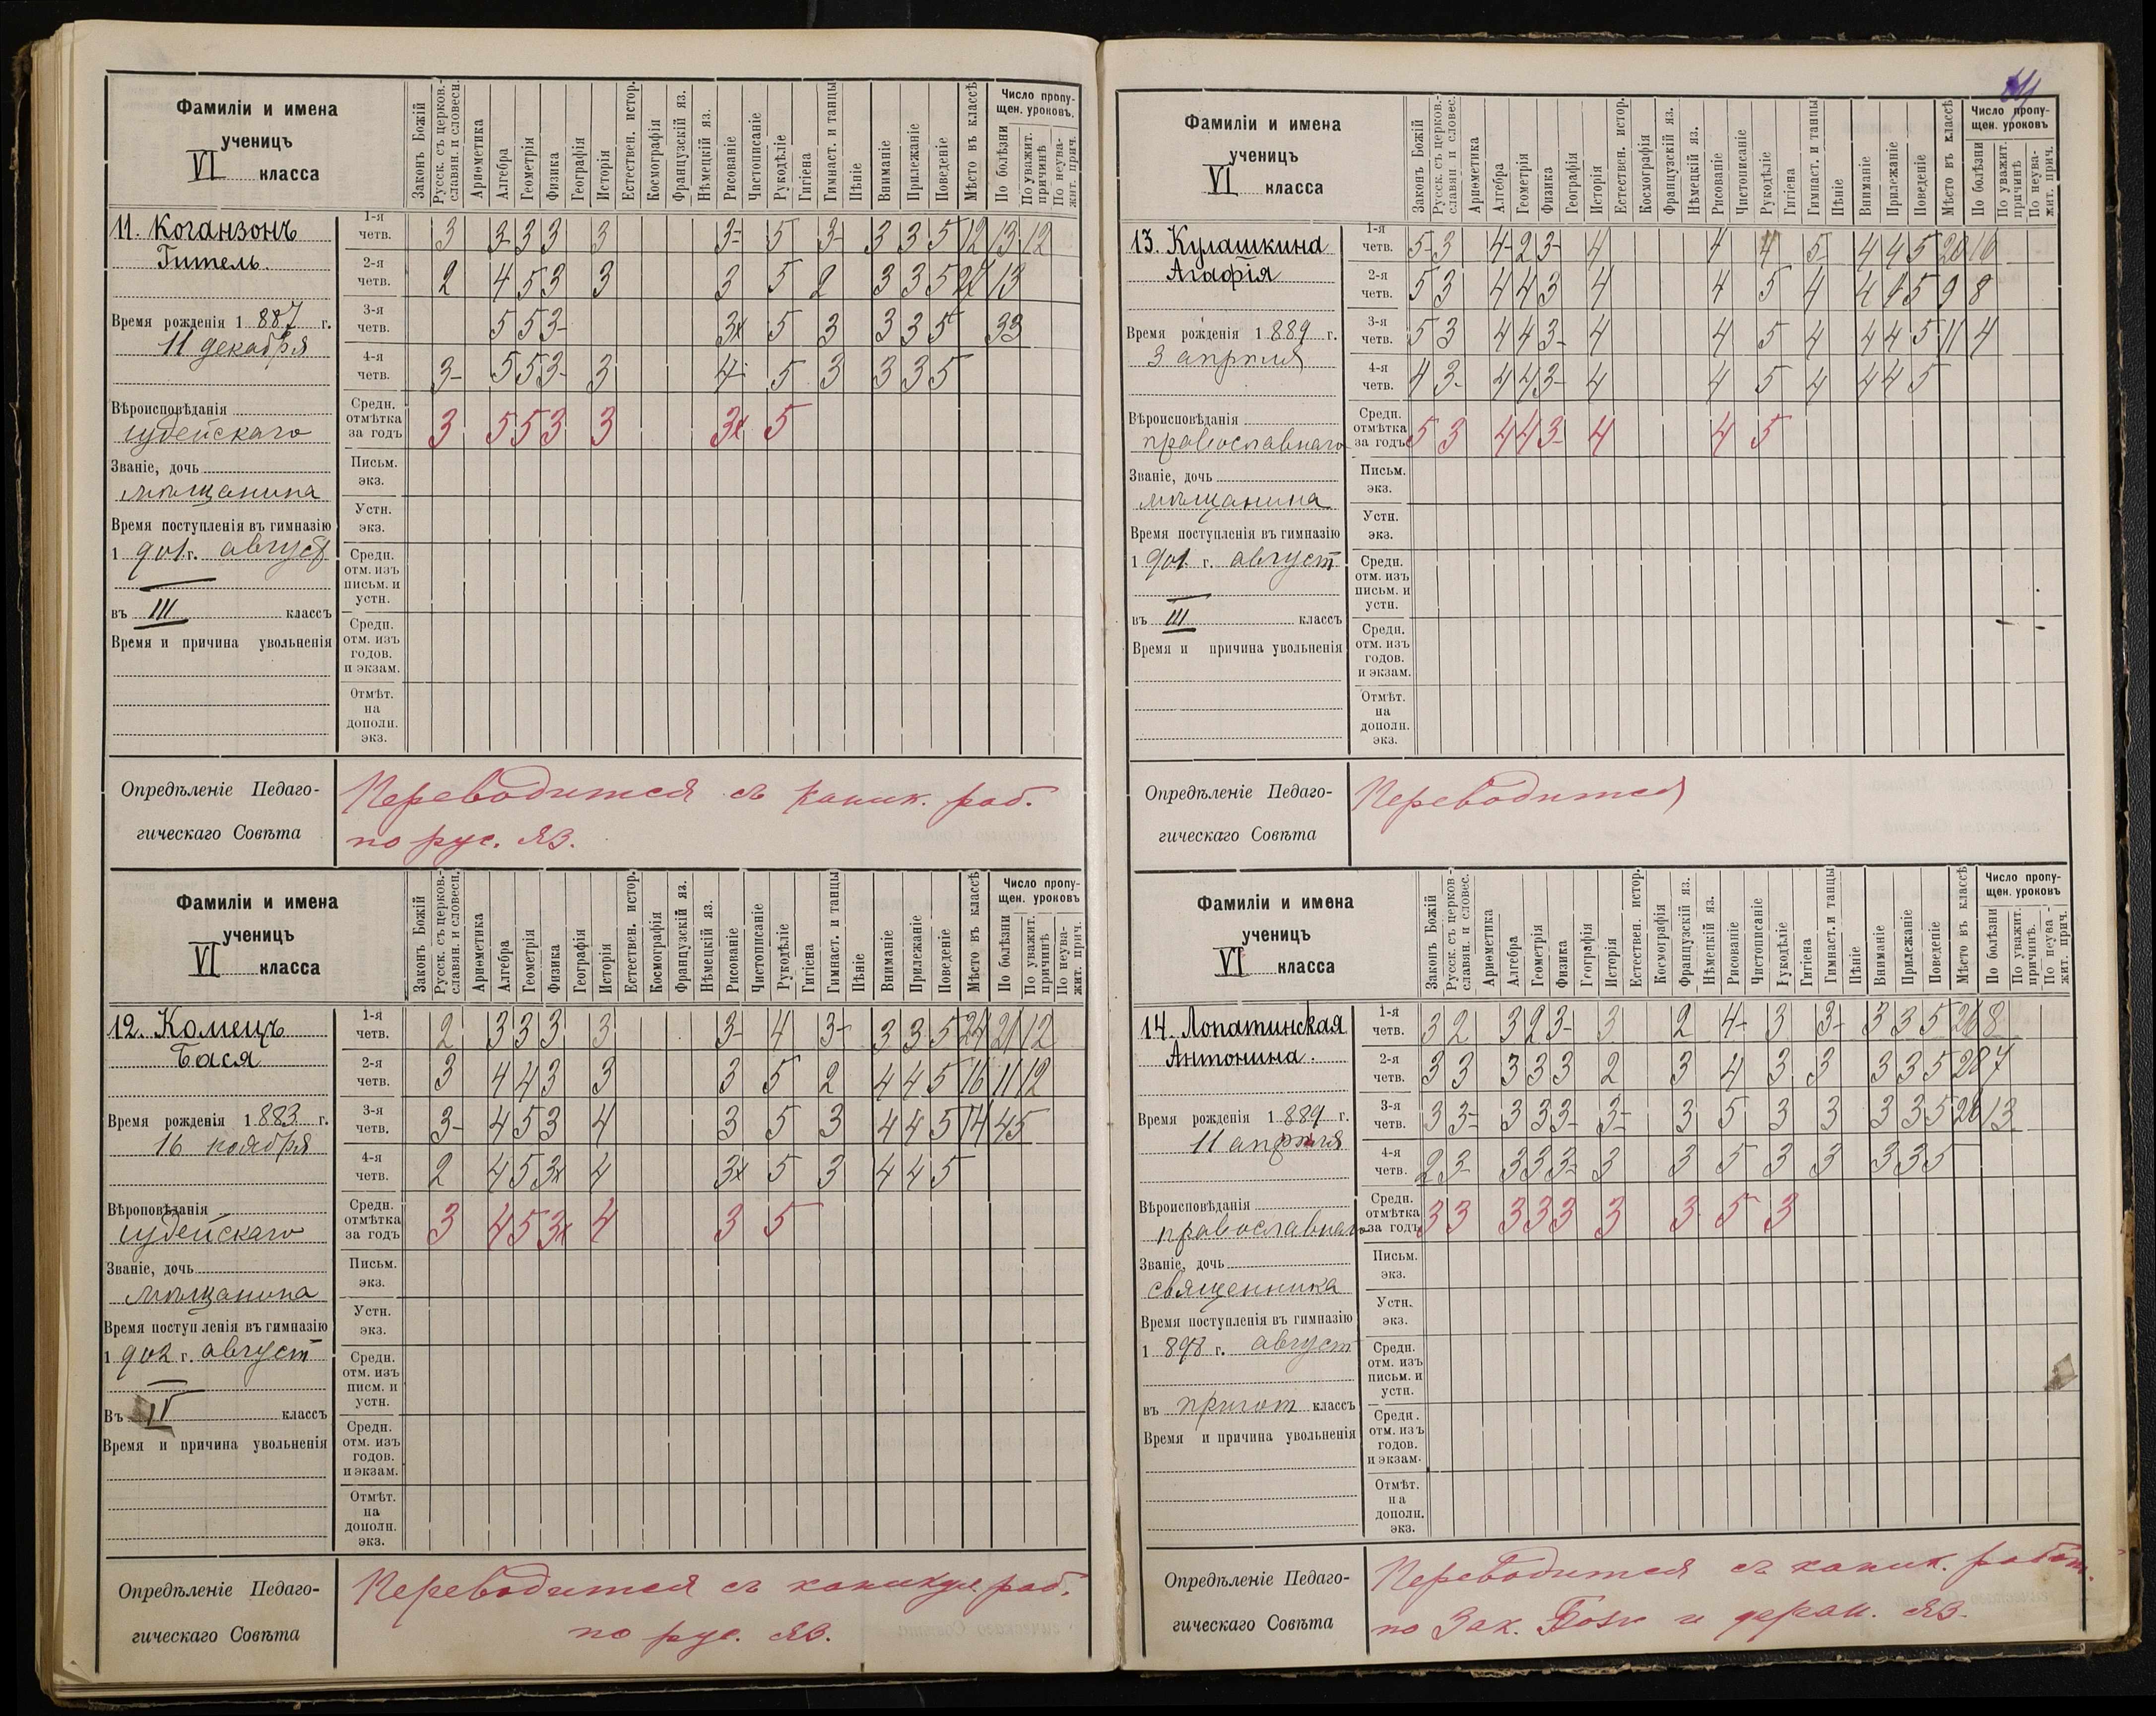 Фамиліи и имена
ученицъ
VI класса
Законъ Божій
Русск. съ церков.-
славян. и словесн.
Ариѳметика
Алгебра
Геометрія
Физика
Географія
Исторія
Естествен. истор.
Космографія
Французскій яз.
Нѣмецкій яз.
Рисованіе
Чистописаніе
Рукодѣліе
Гигіена
Гимнаст. и танцы
Пѣніе
Вниманіе
Прилежаніе
Поведеніе
Мѣсто въ классѣ
Число пропу-
щен. уроковъ.
По болѣзни
По уважит.
причинѣ
По неува-
жит. прич.
11. Коганзонъ
Гитель.
Время рожденія 1887 г.
11 декабря
Вѣроисповѣданія
іудейскаго
Званіе, дочь
мѣщанина
Время поступленія въ гимназію
1901 г. август
въ III классъ
Время и причина увольненія
1-я четв. 3 3- 3 3 3 3- 5 3- 3 3 5 12 13 12
2-я четв. 2 4 5 3 3 3 5 2 3 3 5 13
3-я четв. 5 5 3- 3х 5 3 3 3 5 33
4-я четв. 3- 5 5 3- 3 4- 5 3 3 3 5
Средн. отмѣтка за годъ 3 5 5 3 3 3х 5
Письм.
экз.
Устн.
экз.
Средн.
отм. изъ
письм. и
устн.
Средн.
отм. изъ
годов.
и экзам.
Отмѣт.
на
дополн.
экз.
Опредѣленіе Педаго-
гическаго Совѣта
Переводится съ каник. раб.
по рус. яз.
Фамиліи и имена
ученицъ
VI класса
Законъ Божій
Русск. съ церков.-
славян. и словесн.
Ариѳметика
Алгебра
Геометрія
Физика
Географія
Исторія
Естествен. истор.
Космографія
Французскій яз.
Нѣмецкій яз.
Рисованіе
Чистописаніе
Рукодѣліе
Гигіена
Гимнаст. и танцы
Пѣніе
Вниманіе
Прилежаніе
Поведеніе
Мѣсто въ классѣ
Число пропу-
щен. уроковъ
По болѣзни
По уважит.
причинѣ
По неува-
жит. прич.
12. Комецъ
Бася
Время рожденія 1883 г.
16 ноября
Вѣроповѣданія
іудейскаго
Званіе, дочь
мѣщанина
Время поступленія въ гимназію
1902 г. август
Въ IV классъ
Время и причина увольненія
1-я четв. 2 3 3 3 3 3- 4 3- 3 3 5 24 21 12
2-я четв. 3 4 4 3 3 3 5 2 4 4 5 16 11 12
3-я четв. 3- 4 5 3 4 3 5 3 4 4 5 14 45
4-я четв. 2 4 5 3х 4 3х 5 3 4 4 5
Средн. отмѣтка за годъ 3 4 5 3х 4 3 5
Письм.
экз.
Устн.
экз.
Средн.
отм. изъ
писм. и
устн.
Средн.
отм. изъ
годов.
и экзам.
Отмѣт.
на
дополн.
экз.
Опредѣленіе Педаго-
гическаго Совѣта
Переводится съ каникул. раб.
по рус. яз.
Фамиліи и имена
ученицъ
VI класса
Законъ Божій
Русск. съ церков.-
славян и словес.
Ариѳметика
Алгебра
Геометрія
Физика
Географія
Исторія
Естествен. истор.
Космографія
Французскій яз.
Нѣмецкій яз.
Рисованіе
Чистописаніе
Рукодѣліе
Гигіена
Гимнаст. и танцы
Пѣніе
Вниманіе
Прилежаніе
Поведеніе
Мѣсто въ классѣ
Число пропу-
щен. уроковъ
По болѣзни
По уважит.
причинѣ
По неува-
жит. прич.
13. Кулашкина
Агафія
Время рожденія 1889 г.
3 апрѣля
Вѣроисповѣданія
православнаго
Званіе, дочь
мѣщанина
Время поступленія въ гимназію
1901 г. август
въ III классъ
Время и причина увольненія
1-я четв. 5- 3 4- 2 3- 4 4 4 5- 4 4 5 20 16
2-я четв. 5 3 4 4 3 4 4 5 4 4 4 5 9 8
3-я четв. 5 3 4 4 3- 4 4 5 4 4 4 5 11 4
4-я четв. 4 3- 4 4 3- 4 4 5 4 4 4 5
Средн. отмѣтка за годъ 5 3 4 4 3- 4 4 5
Письм.
экз.
Устн.
экз.
Средн.
отм. изъ
письм. и
устн.
Средн.
отм. изъ
годов.
и экзам.
Отмѣт.
на
дополн.
экз.
Опредѣленіе Педаго-
гическаго Совѣта
Переводится
Фамиліи и имена
ученицъ
VI класса
Законъ Божій
Русск. съ церков-
славян. и словес.
Ариѳметика
Алгебра
Геометрія
Физика
Географія
Исторія
Естествен. истор.
Космографія
Французскій яз.
Нѣмецкій яз.
Рисованіе
Чистописаніе
Рукодѣліе
Гигіена
Гимнаст. и танцы
Пѣніе
Вниманіе
Прилежаніе
Поведеніе
Мѣсто въ классѣ
Число пропу-
щен. уроковъ
По болѣзни
По уважит.
причинѣ.
По неува-
жит. прич.
14. Лопатинская
Антонина.
Время рожденія 1889 г.
11 апрѣля
Вѣроисповѣданія
православнаго
Званіе, дочь
священника
Время поступленія въ гимназію
1898 г. август
въ пригот классъ
Время и причина увольненія
1-я четв. 3 2 3 2 3- 3 2 4- 3 3- 3 3 5 26 8
2-я четв. 3 3 3 3 3 2 3 4 3 3 3 3 5 28 7
3-я четв. 3 3- 3 3 3- 3- 3 5 3 3 3 3 5 26 13
4-я четв. 2 3- 3 3 3- 3 3 5 3 3 3 3 5
Средн. отмѣтка за годъ 3 3 3 3 3 3 3 5 3
Письм.
экз.
Устн.
экз.
Средн.
отм. изъ
письм. и
устн.
Средн.
отм. изъ
годов.
и экзам.
Отмѣт.
на
дополн.
экз.
Опредѣленіе Педаго-
гическаго Совѣта
Переводится съ каник. работ.
по Зак. Бож и фран. яз.